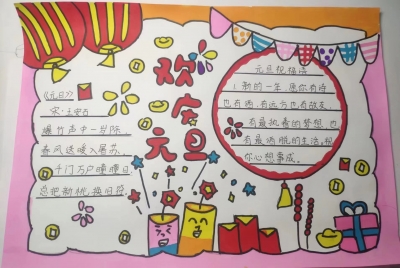 《元日》
宋·王安石
爆竹声中一岁除,
春风送暖入屠苏.
千门万户曈曈日,
总把新桃换旧符.
欢庆
元旦
元旦祝福语
新的一年,愿你有诗
也有酒,有远方也有故友.
有最执着的梦想,也
有最洒脱的生活,祝
你心想事成.